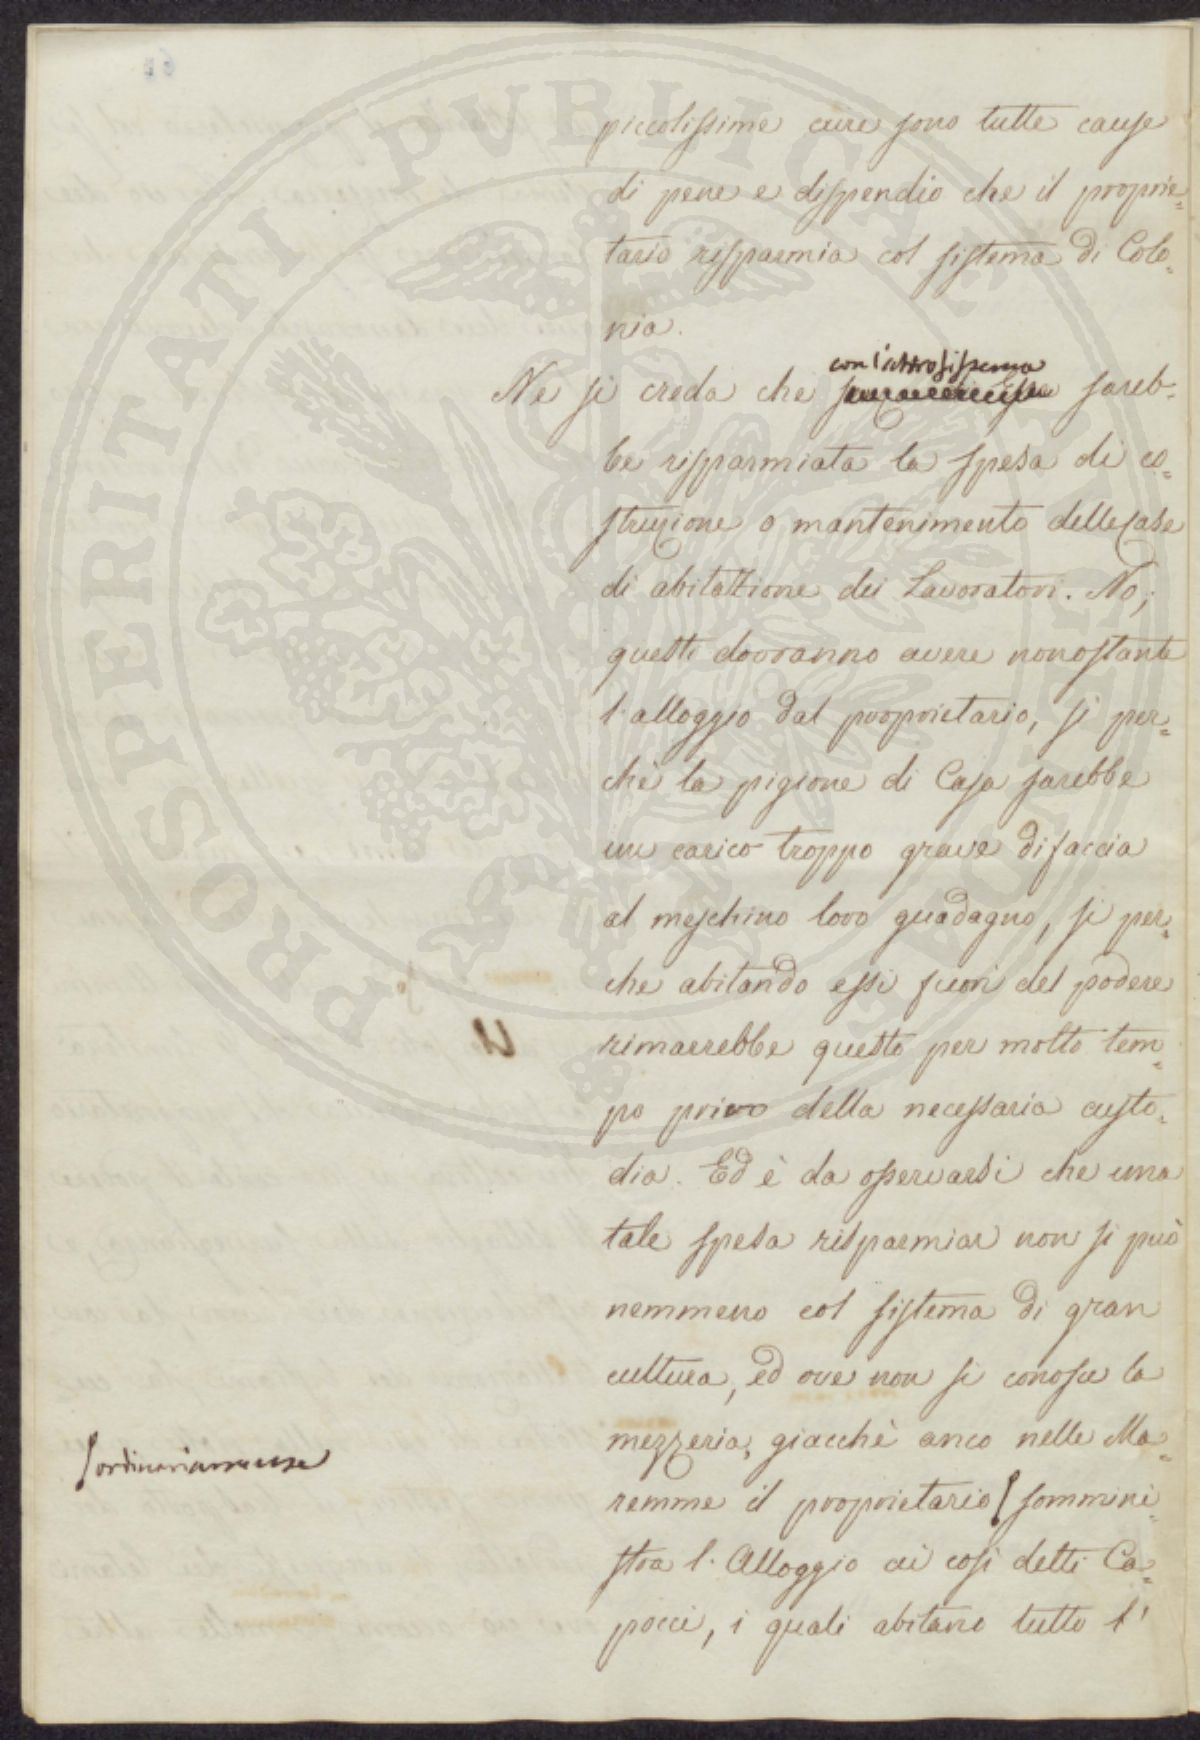 PROSPERITATI PUBLICAE AUGENDAE
piccolissime cure sono tutte cause
di pene e dispendio che il proprie=
tario risparmia col sistema di Colo=
nia.
con l'altro sistema
Ne si creda che sareb=
be risparmiata la spesa di co=
struzione o mantenimento delle Case
di abitazione dei Lavoratori. No;
questi dovranno avere nonostante
l'alloggio dal proprietario, si per=
chè la pigione di Casa sarebbe
un carico troppo grave difaccia
al meschino loro guadagno, si per=
che abitando essi fuori del podere
rimarrebbe questo per molto tem=
po privo della necessaria custo=
dia. Ed è da osservarsi che una
tale spesa risparmiar non si può
nemmeno col sistema di gran
cultura, ed ove non si conosce la
mezzeria, giacchè anco nelle Ma=
ordinariamente
remme il proprietario sommini=
stra l'Alloggio ai così detti Ca=
pocci, i quali abitano tutto l'